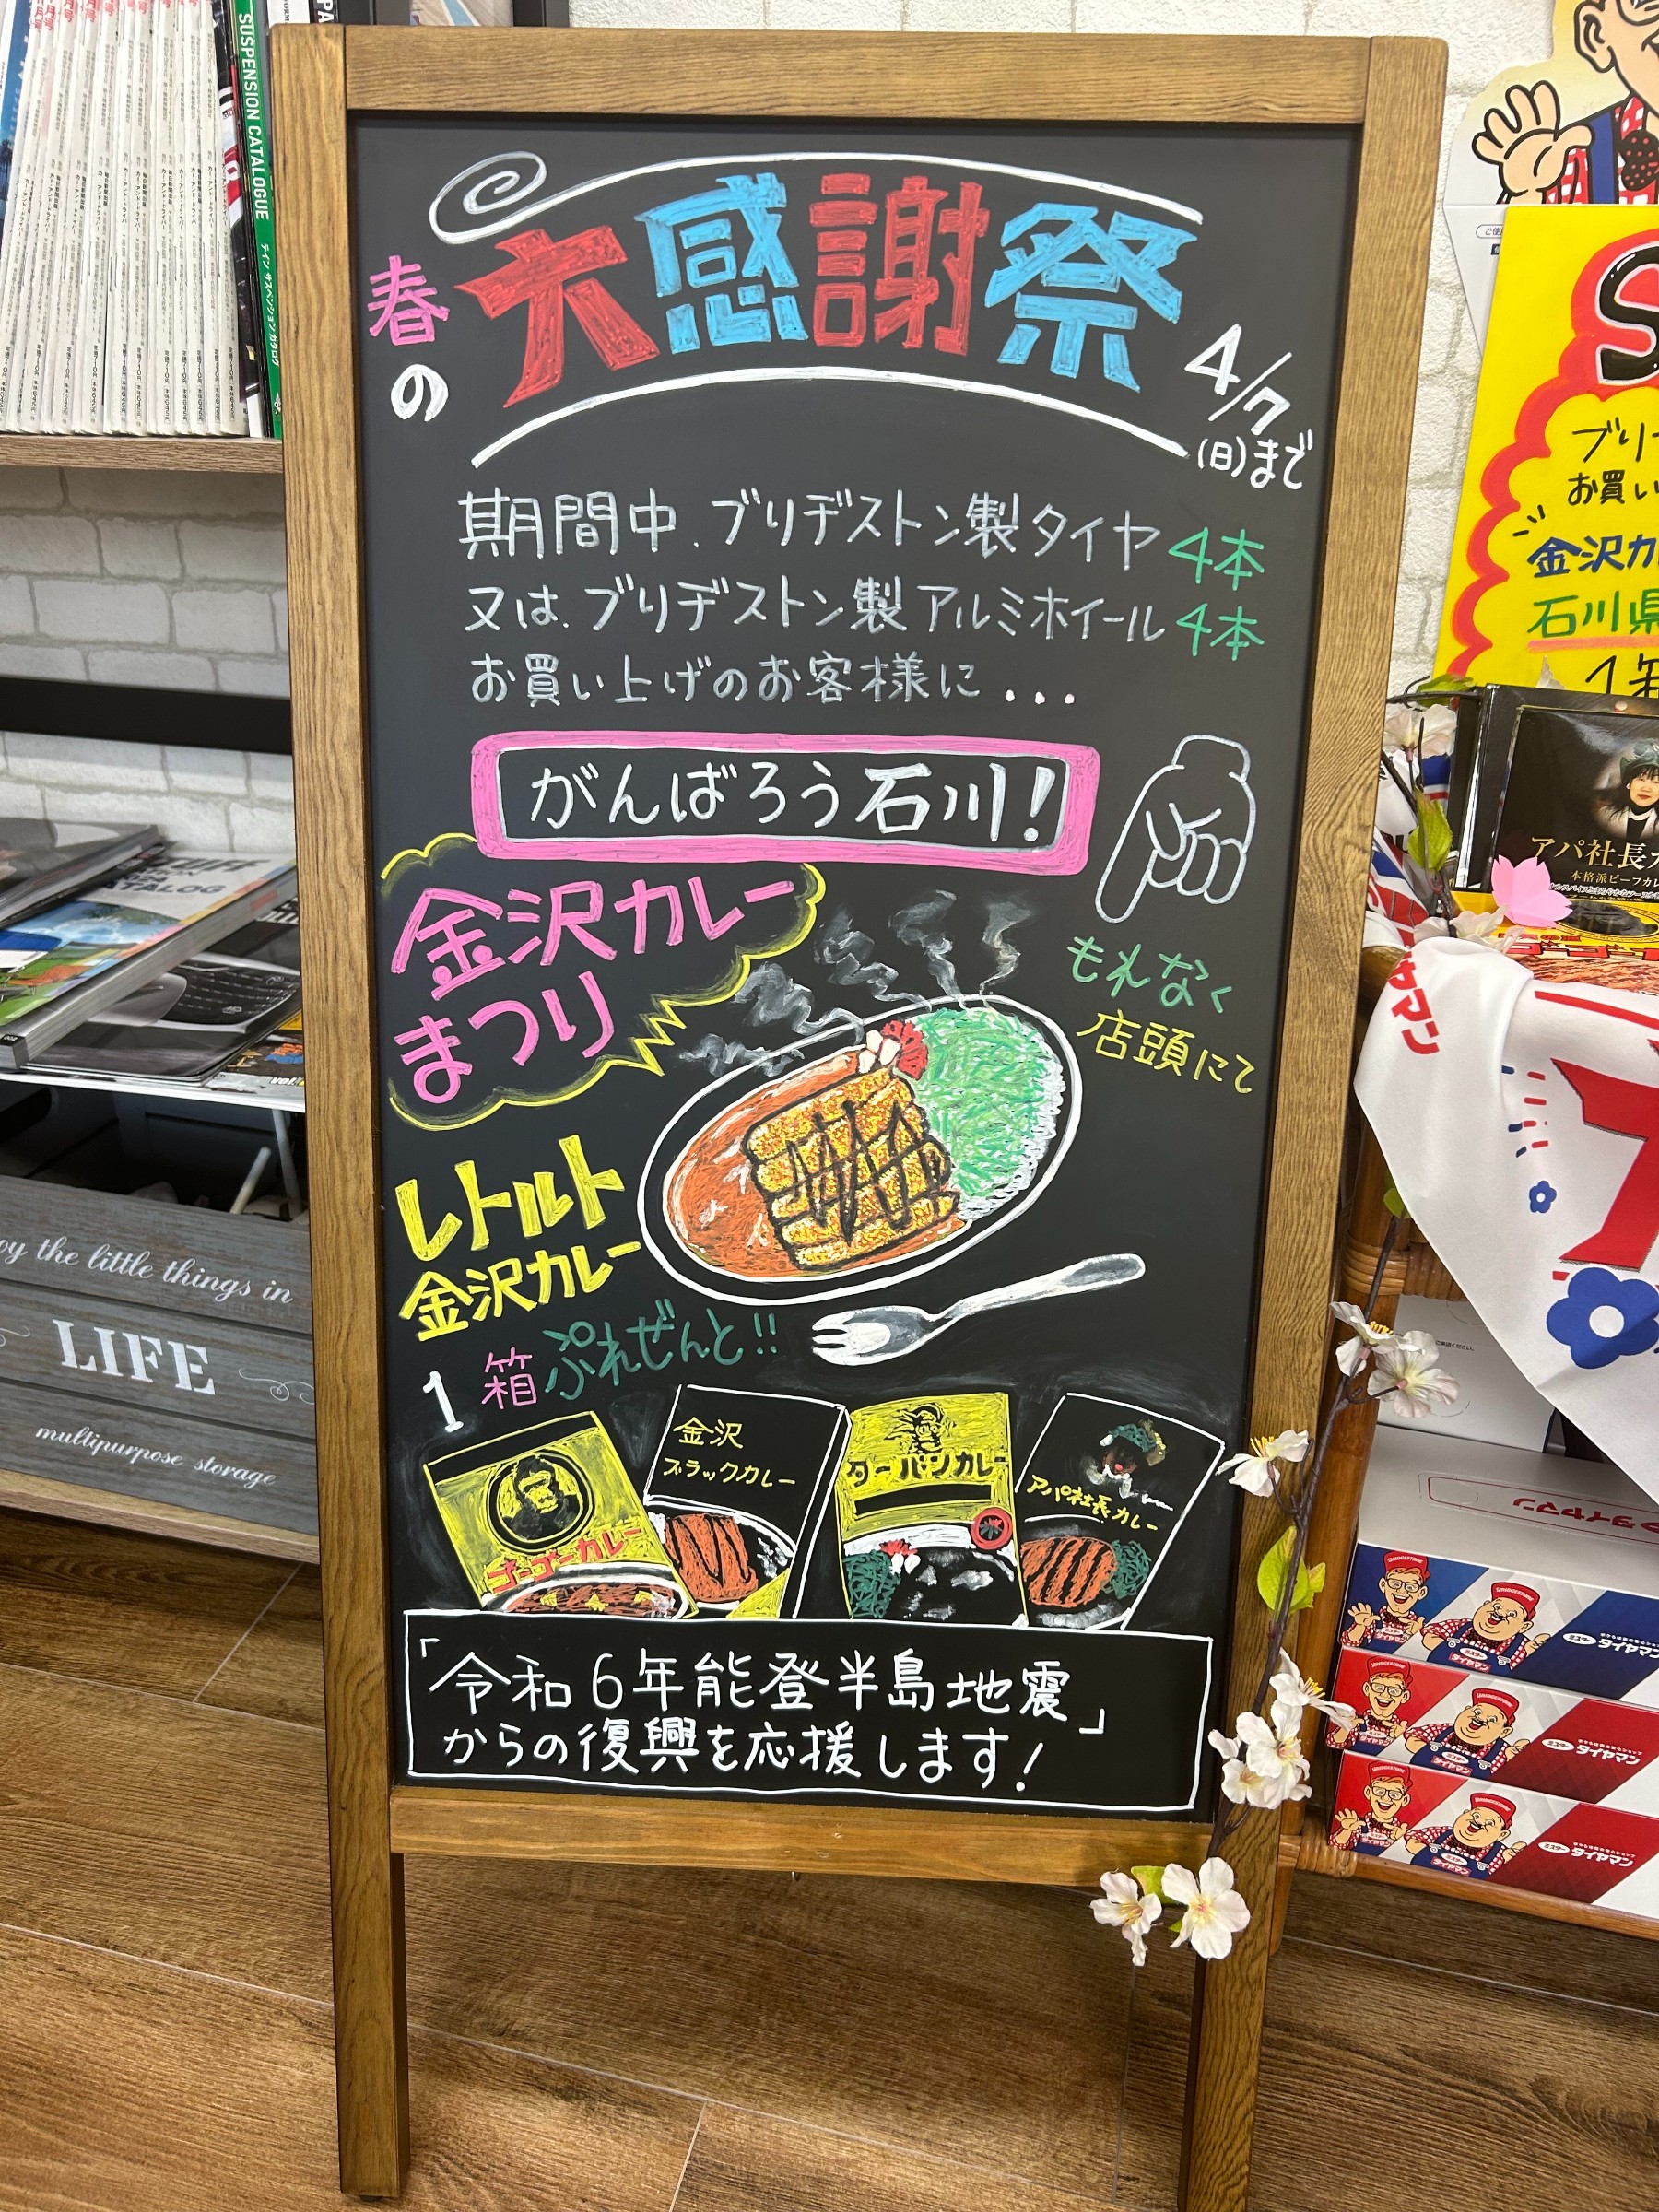 SUSPENSION CATALOGUE
テイン サスペンションカタログ
春の
大感謝祭
4/7
(日)まで
期間中、ブリヂストン製タイヤ4本
又は、ブリヂストン製アルミホイール4本
お買い上げのお客様に...
がんばろう石川!
金沢カレー
まつり
もれなく
店頭にて
レトルト
金沢カレー
1箱ぷれぜんと!!
ゴーゴーカレー
金沢
ブラックカレー
ターバンカレー
アパ社長カレー
「令和6年能登半島地震」
からの復興を応援します!
お買い
金沢カ
石川県
アパ社長カ
本格派ビーフカレ
タイヤマン
ミスター タイヤマン
ミスター タイヤマン
ミスター タイヤマン
CATALOG
the little things in
LIFE
multipurpose storage